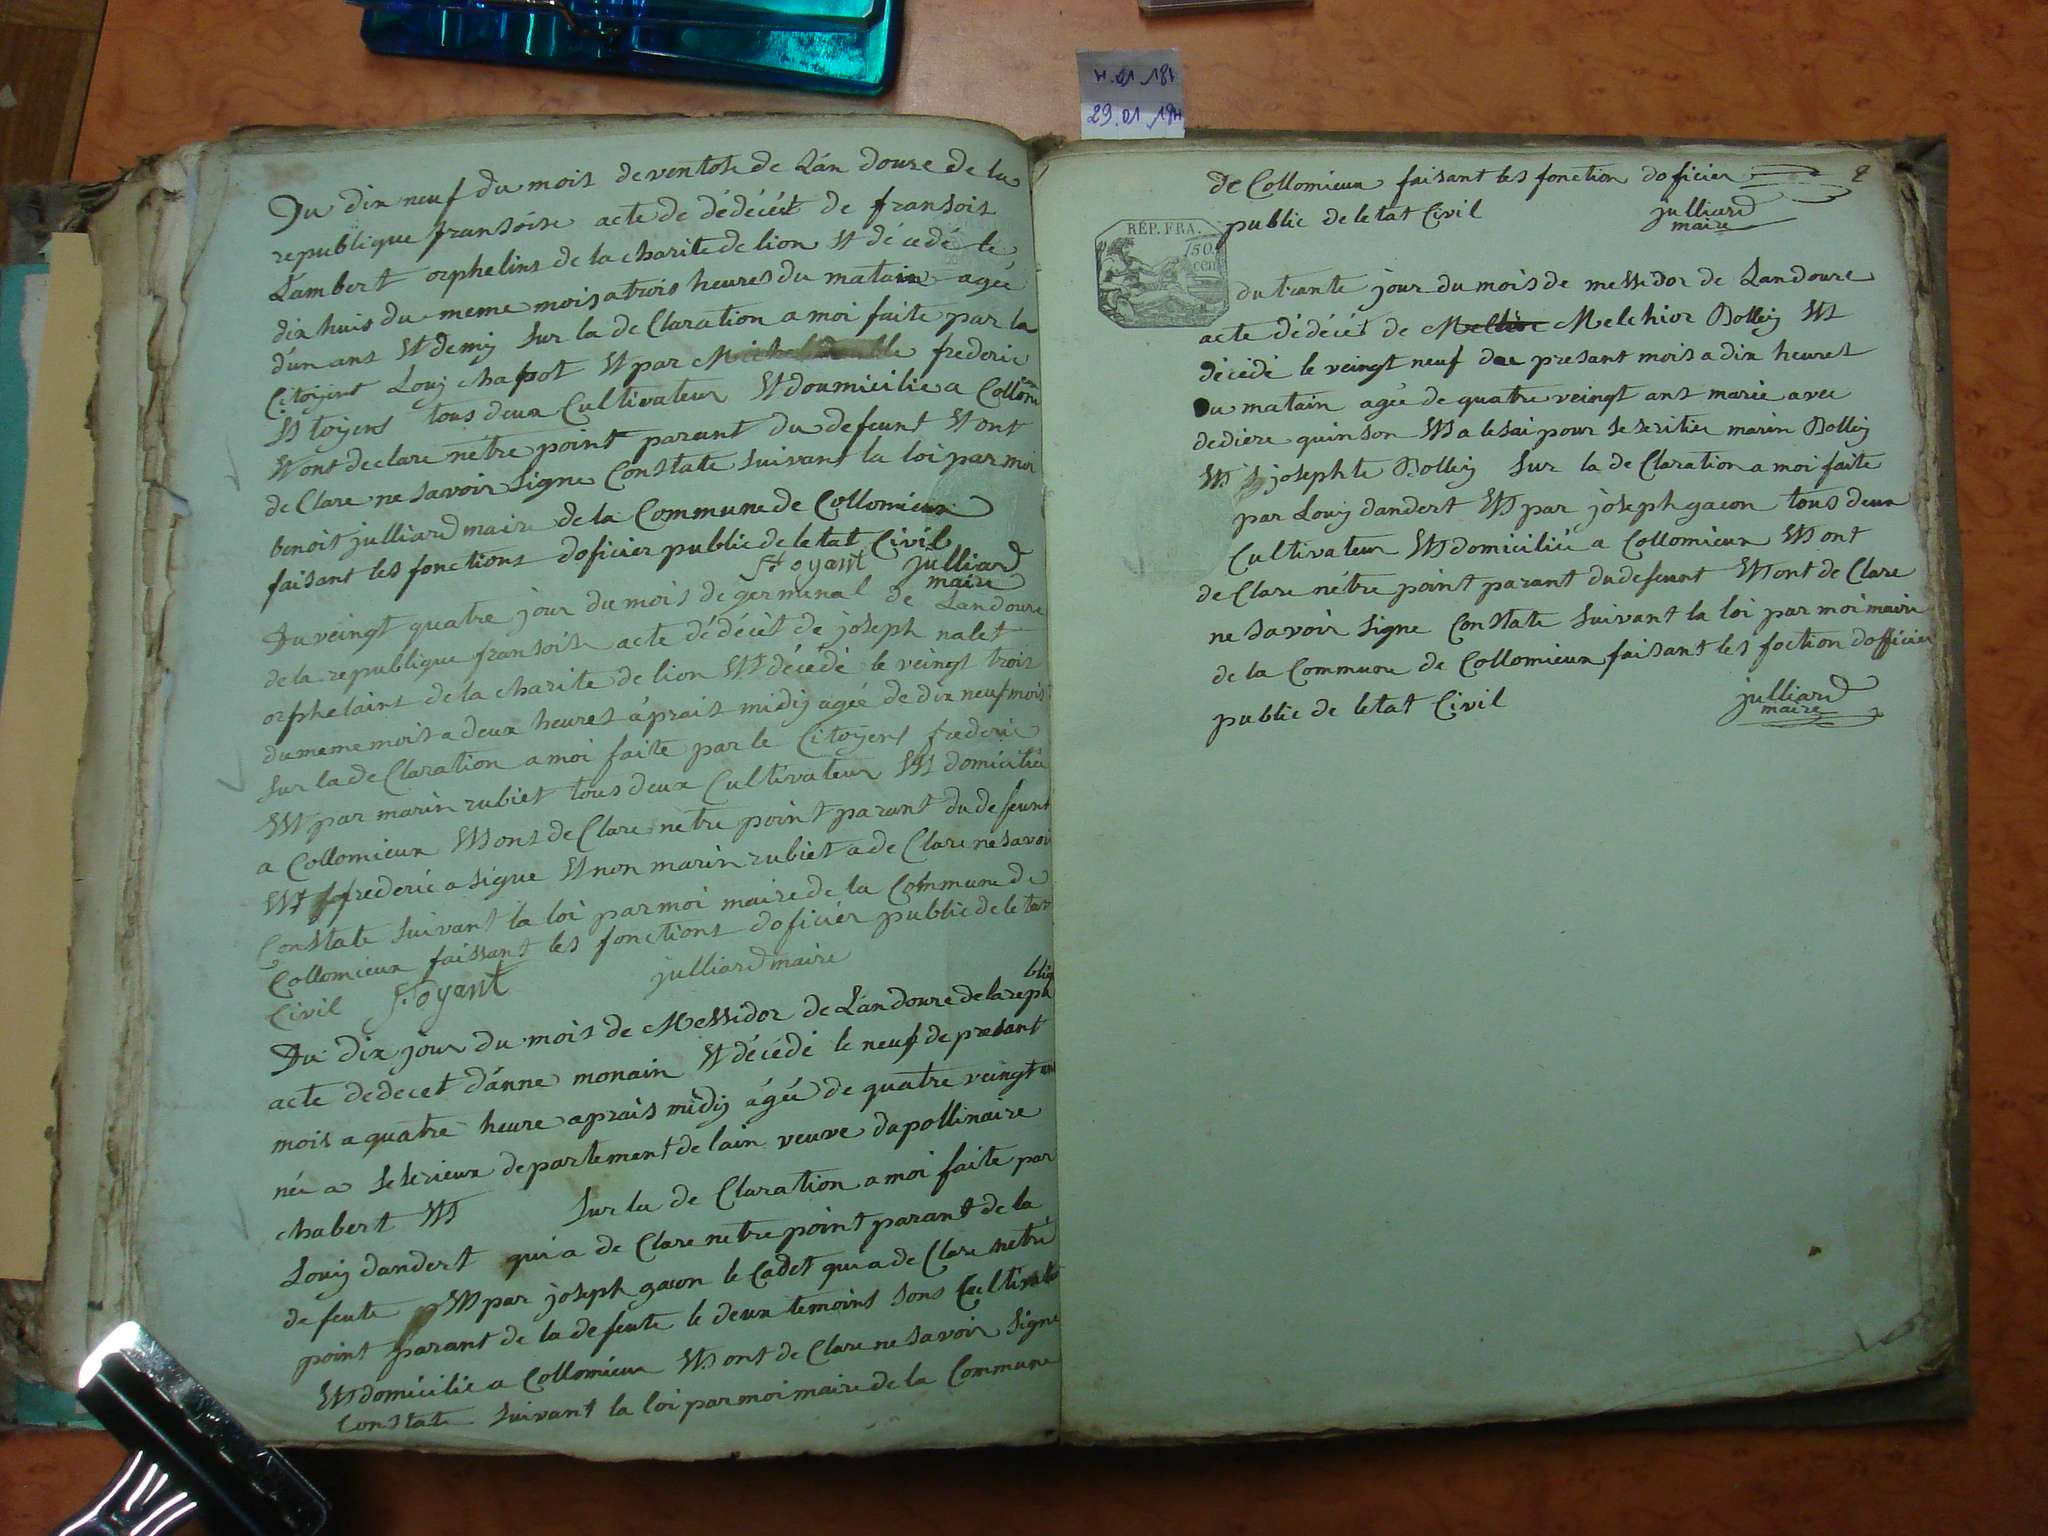 Du dix neuf du mois de ventose de Lán douze de la
republique fransoise acte de dédécét de fransois
Lámbert orphelins de la charite de lion Et décedé le
dix huis du meme mois a trois heures du matain agée
dún ans Et demij Sur la de Claration a moi faite par la
Citoyens Louij chapot Et par frederic
tous deux Cultivateur Et doumicilie a
Et ont declare nétre point parant du defeunt Et ont
de Clare ne Savoir Signe Constate Suivant la loi par moi
benoit julliard maire de la Commune de Collomieux
faisant les fonctions doficier public de letat Civil
foyant julliard
maire
Du veingt quatre jour du mois de germinal de Landouze
de la republique fransoise acte dédécèt de joseph nalet
orphelains de la charite de lion Et décédé le veingt trois
du meme mois a deux heures áprais midij agée de dix neuf mois
Sur la de Claration a moi faite par le Citoyens frederic
Et par marin rubiet tous deux Cultivateur Et domicilie
a Collomieux Et ont de Clare netre point parant du defeunt
Et frederic a Signe Et non marin rubiet a de Clare ne Savoi
Constate Suivant la loi par moi maire de la Commune de
Collomieux faissant les fonctions doficiér public de letat
Civil foyant julliard maire
Du dix jour du mois de Messidor de Lán douze de la repu
bliq
acte dedecet dánne monain Et décédé le neuf de presant
mois a quatre heure aprais midij ágée de quatre veingt ans
née a departement de lain veuve dapollinaire
chabert Et Sur la de Claration a moi faite par
Louij dandert qui a de Clare netre point parant de la
defeute Et par joseph gacon le Cadet qui a de Clare netre
point parant de la defeute le deux temoins Sons Cultivate
Et domicilie a Collomieux Et ont de Clare ne Savoir Signe
Constate Suivant la loi par moi maire de la Commune
de Collomieux faisant les fonction doficier
public de letat Civil julliard
maire
RÉP. FRA.
50
cen
du trante jour du mois de messidor de Landouze
acte dédécét de Melchior Bolleij Et
décédé le veingt neuf du presant mois a dix heures
du matain agée de quatre veingt ans marie avec
dediere quinson Et a lesai pour Se Zeritier marin Bolleij
Et josephte Bolleij Sur la de Claration a moi faite
par Louij dandert Et par joseph gacon tous deux
Cultivateur Et domicilie a Collomieux Et ont
de Clare nétre point parant du defeunt Et ont de Clare
ne Savoir Signe Constate Suivant la loi par moi maire
de la Commune de Collomieux faisant les foction dofficier
public de letat Civil julliard
maire
29.01.